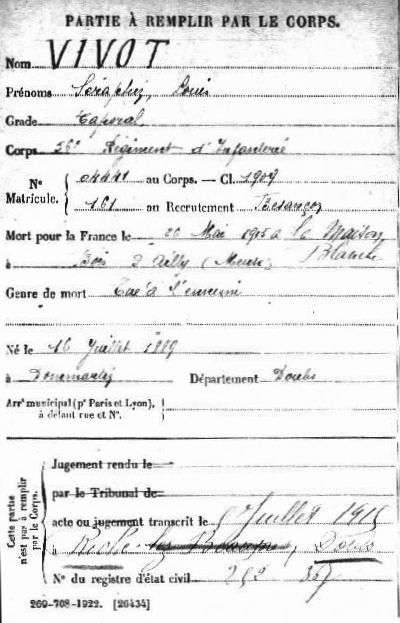 PARTIE À REMPLIR PAR LE CORPS.
Nom VIVOT
Prénoms Séraphin, Louis
Grade Caporal
Corps 56e Régiment d'Infanterie
N° Matricule. { 04441 au Corps. — Cl. 1909
161 au Recrutement Besançon
Mort pour la France le 26 Mai 1915 à la Maison Blanche
à Bois d'Ailly (Meuse)
Genre de mort Tué à l'ennemi
Né le 16 Juillet 1889
à Dommartin Département Doubs
Arrt municipal (pr Paris et Lyon), à défaut rue et N°.
Cette partie n'est pas à remplir par le Corps.
Jugement rendu le
par le Tribunal de
acte ou jugement transcrit le Juillet 1915
à Roche lez Doubs
N° du registre d'état civil
269-708-1922. [26434]